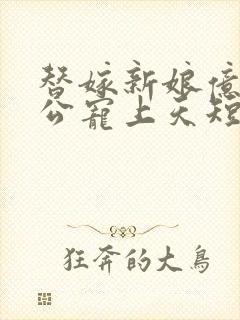 替嫁新娘億
公寵上天短
狂奔的大鳥